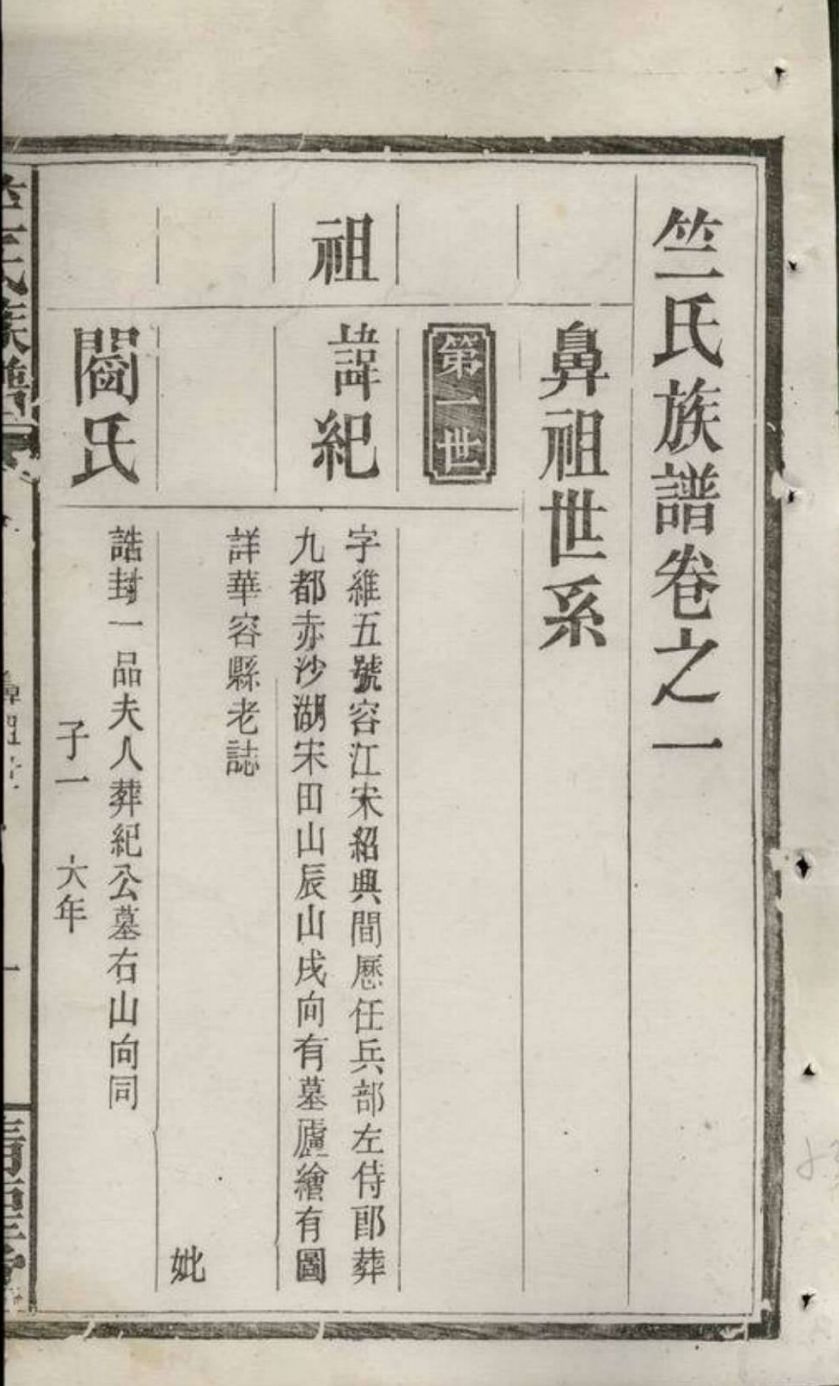 竺氏族譜卷之一
鼻祖世系
第一世
祖
諱紀
字維五號容江宋紹興間歷任兵部左侍郎葬
九都赤沙湖宋田山辰山戌向有墓廬繪有圖
詳華容縣老誌
妣
閻氏
誥封一品夫人葬紀公墓右山向同
子一 大年
竺氏族譜